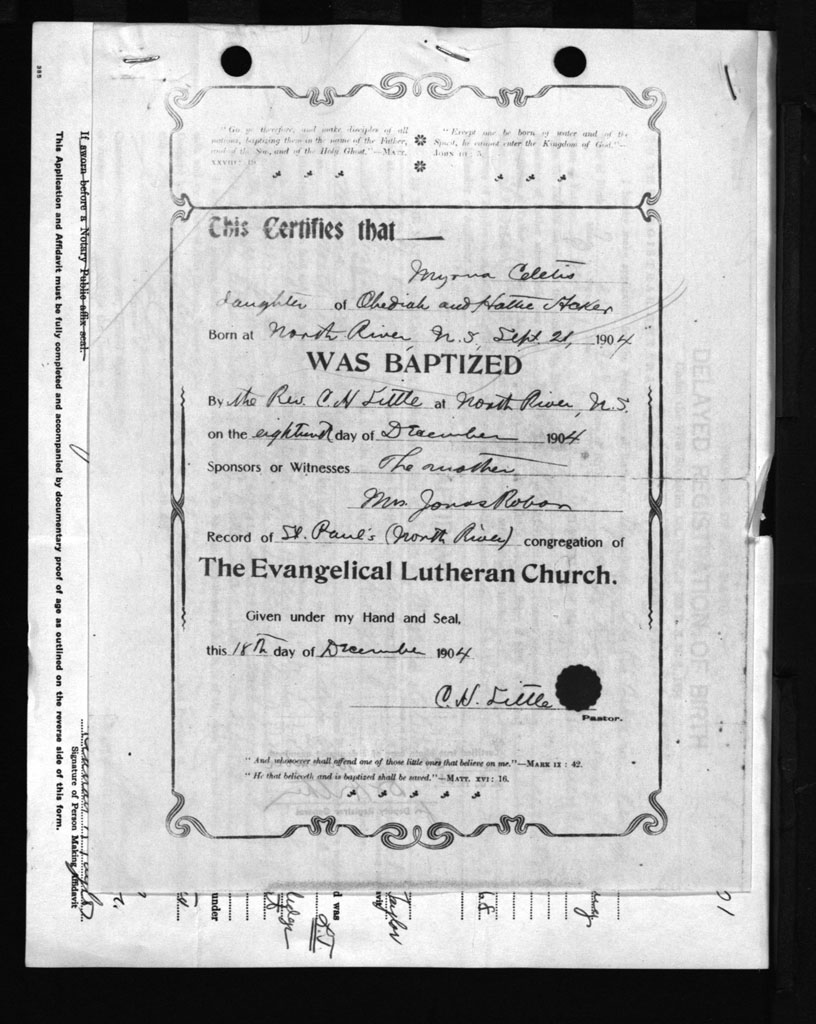 "Go ye therefore, and make disciples of all nations, baptizing them in the name of the Father, and of the Son, and of the Holy Ghost."—MATT. XXVIII: 19
"Except one be born of water and of the Spirit, he cannot enter the Kingdom of God."—JOHN III: 5
This Certifies that
Myrna Celetis
daughter of Obediah and Hattie
Born at North River, N.S, Sept. 21, 1904
WAS BAPTIZED
By the Rev. C H Little at North River, N.S.
on the eighteenth day of December 1904
Sponsors or Witnesses The mother
Mrs. Jonas
Record of St. Paul's (North River) congregation of
The Evangelical Lutheran Church.
Given under my Hand and Seal,
this 18th day of December 1904
C. H. Little
Pastor.
"And whosoever shall offend one of those little ones that believe on me."—MARK IX: 42.
"He that believeth and is baptized shall be saved."—MATT. XVI: 16.
If sworn before a Notary Public affix seal.
This Application and Affidavit must be fully completed and accompanied by documentary proof of age as outlined on the reverse side of this form.
Signature of Person Making Affidavit
DELAYED REGISTRATION OF BIRTH
under
d was
Taylor